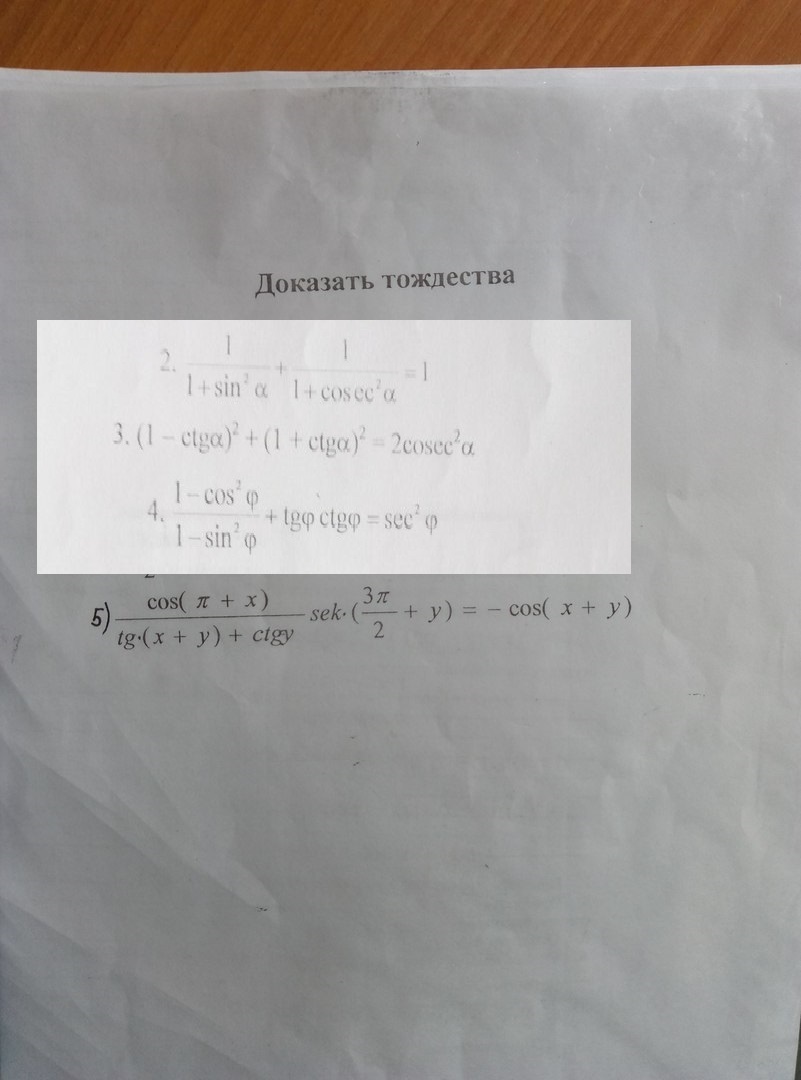 Доказать тождества
2. 1/(1+sin²α) + 1/(1+cosec²α) = 1
3. (1 − ctgα)² + (1 + ctgα)² = 2cosec²α
4. (1−cos²φ)/(1−sin²φ) + tgφ ctgφ = sec²φ
5) cos( π + x)/(tg·(x + y) + ctgy) sek·(3π/2 + y) = − cos( x + y)